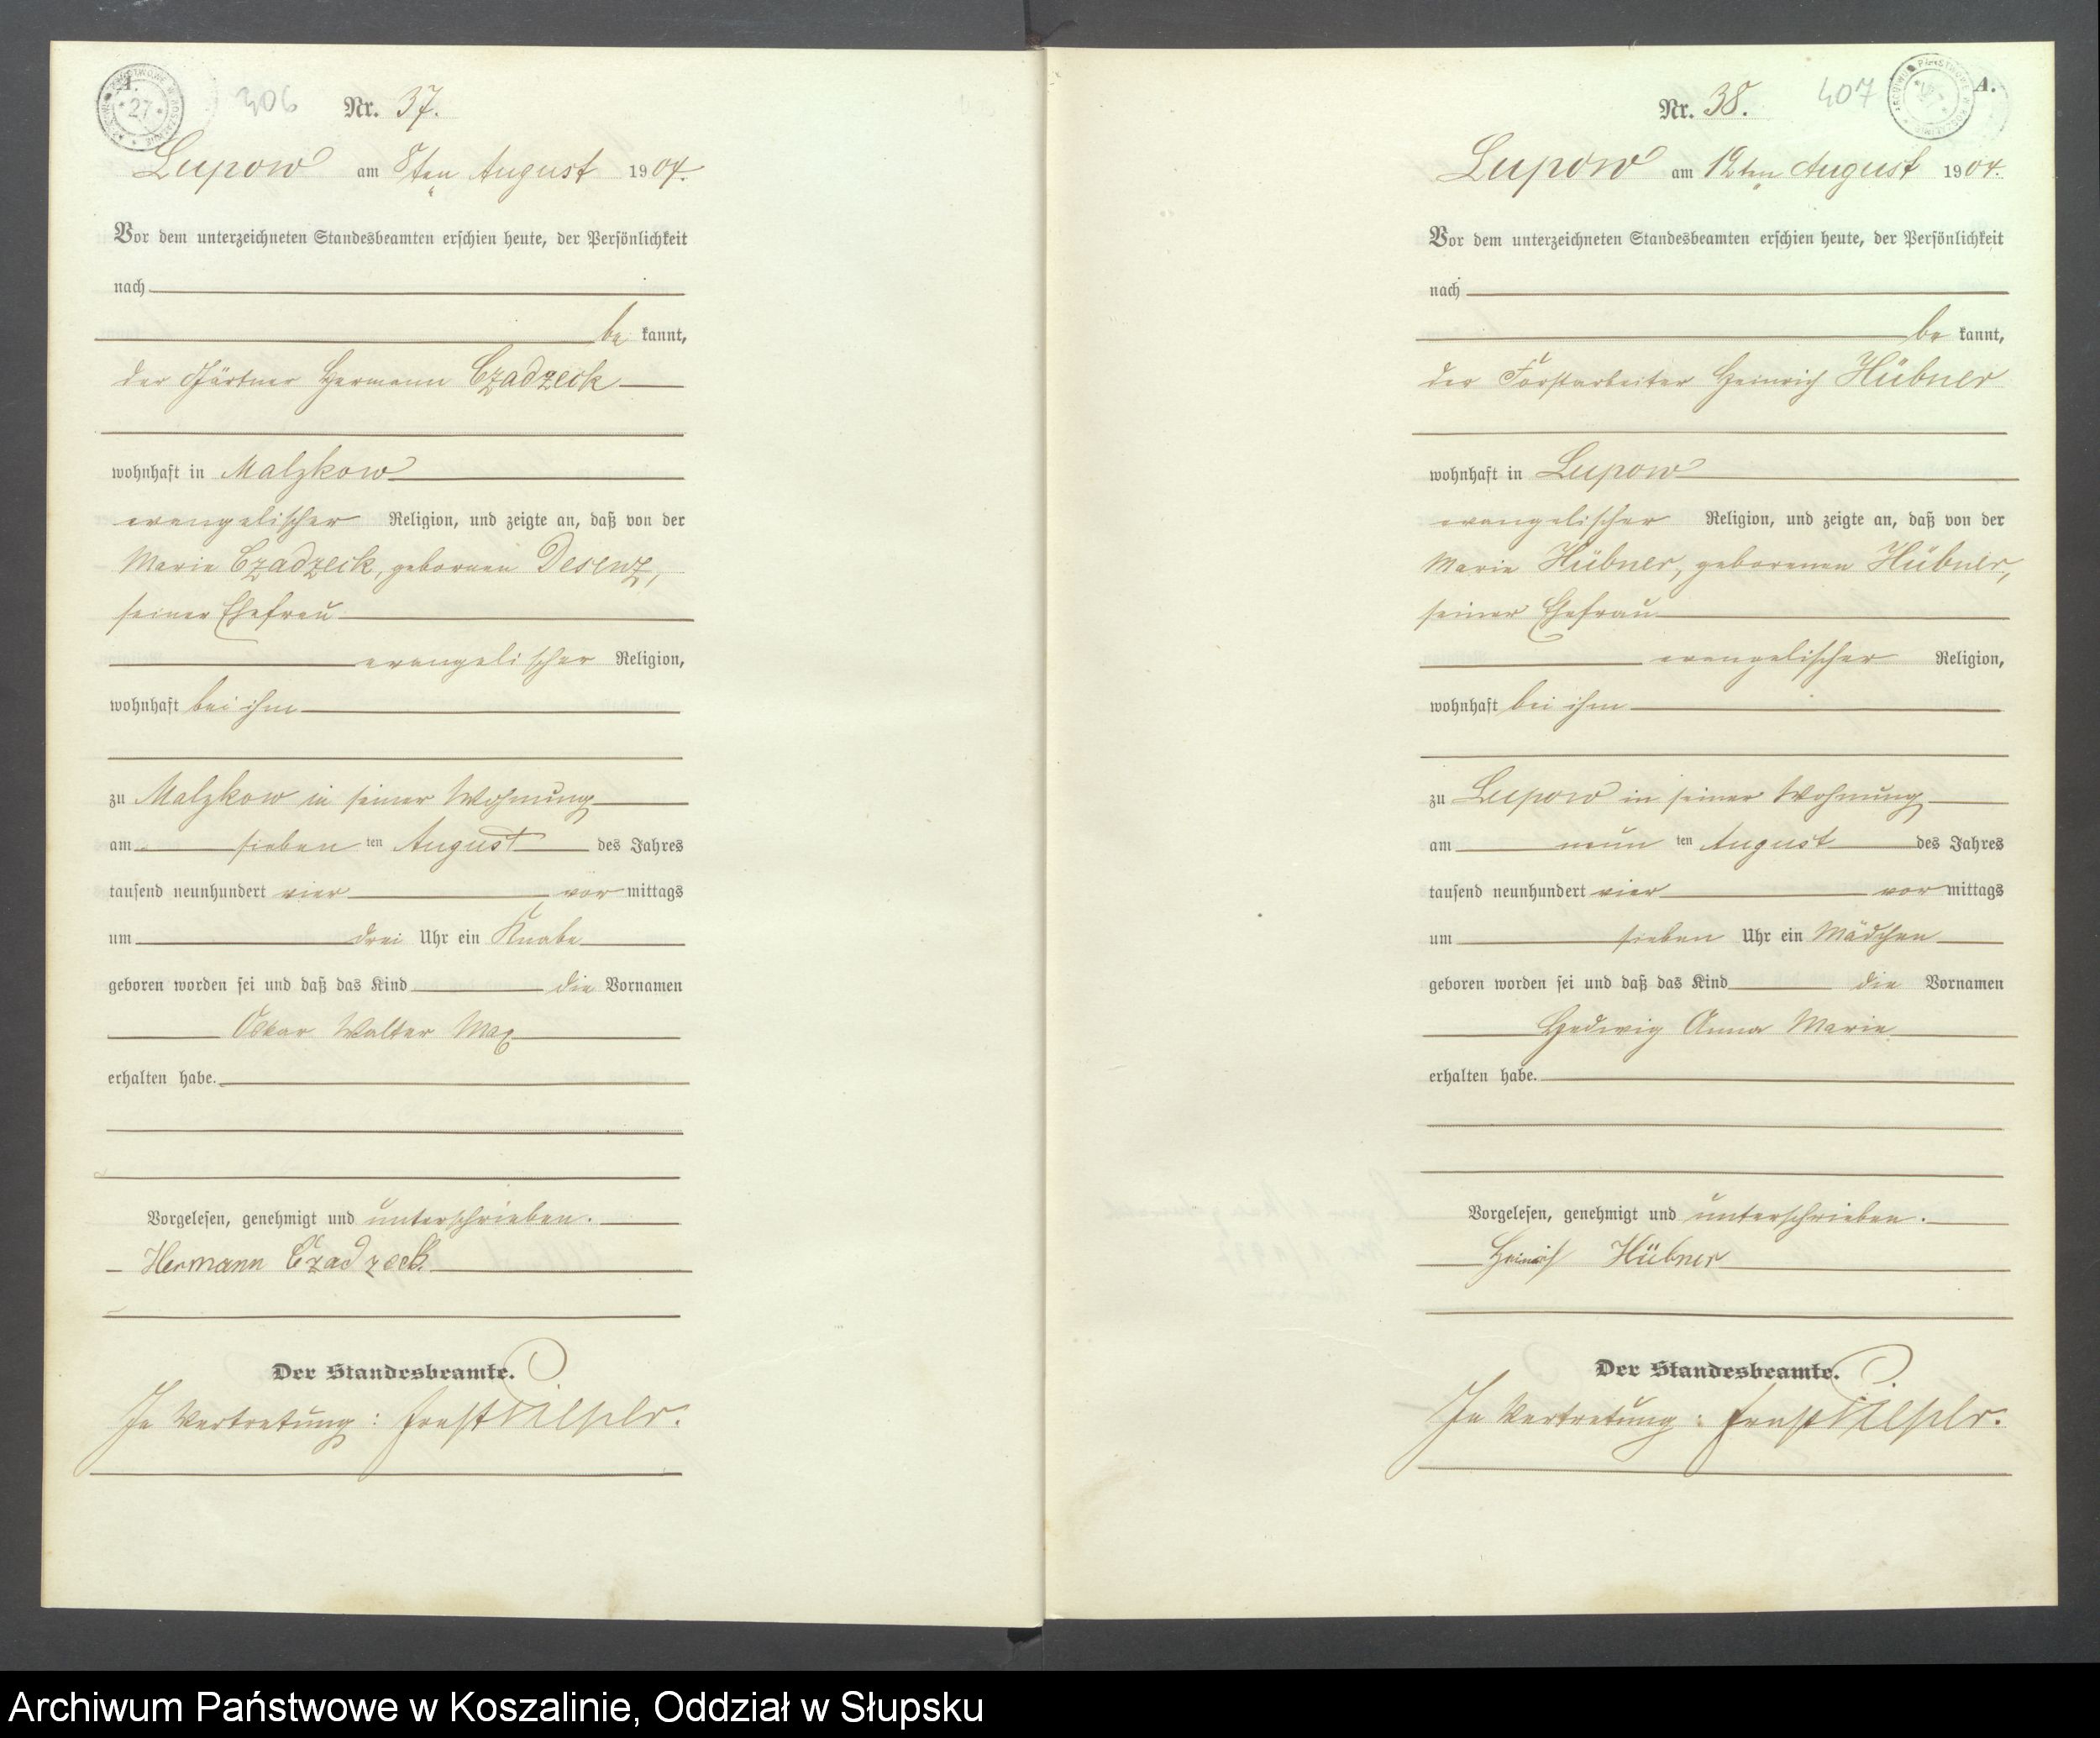 A.
406
Nr. 37.
Lupow am 8ten August 1904.
Vor dem unterzeichneten Standesbeamten erschien heute, der Persönlichkeit
nach
be kannt,
der Gärtner Hermann Czadzeck
wohnhaft in Malzkow
evangelischer Religion, und zeigte an, daß von der
Marie Czadzeck, gebornen Desenz,
seiner Ehefrau
evangelischer Religion,
wohnhaft bei ihm
zu Malzkow in seiner Wohnung
am sieben ten August des Jahres
tausend neunhundert vier vor mittags
um drei Uhr ein Knabe
geboren worden sei und daß das Kind die Vornamen
Oskar Walter Max
erhalten habe.
Vorgelesen, genehmigt und unterschrieben.
Hermann Czadzeck
Der Standesbeamte.
In Vertretung: Ernst
407
A.
Nr. 38.
Lupow am 12ten August 1904.
Vor dem unterzeichneten Standesbeamten erschien heute, der Persönlichkeit
nach
be kannt,
der Forstarbeiter Heinrich Hübner
wohnhaft in Lupow
evangelischer Religion, und zeigte an, daß von der
Marie Hübner, geborenen Hübner,
seiner Ehefrau
evangelischer Religion,
wohnhaft bei ihm
zu Lupow in seiner Wohnung
am neun ten August des Jahres
tausend neunhundert vier vor mittags
um sieben Uhr ein Mädchen
geboren worden sei und daß das Kind die Vornamen
Hedwig Anna Marie
erhalten habe.
Vorgelesen, genehmigt und unterschrieben.
Heinrich Hübner
Der Standesbeamte.
In Vertretung: Ernst
Archiwum Państwowe w Koszalinie, Oddział w Słupsku